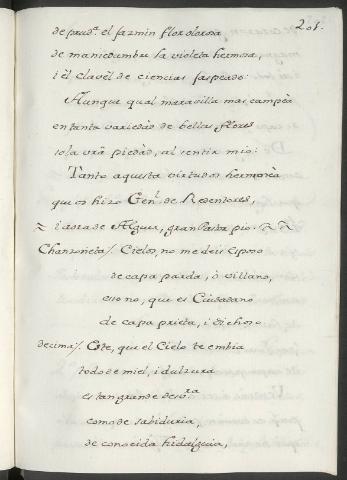 201.
de prud.ª el jazmin flor olorosa
de mansedumbre la violeta hermosa,
i èl clavèl de ciencias jaspeado:
Aunque qual maravilla mas campèa
en tanta variedàd de bellas flores
sola vrã piedàd, al sentir mio:
Tanto aquesta virtud os hermosèa
que os hizo Gen.l de Redentores,
i aora de Alguer, gran Pastor pio.
Chanzonéta/. Cielos, no me deis Esposo
de capa parda, ò villano,
esso no, que es Ciudadano
de capa prieta, i dichoso
decima/. Este, que el Cielo te embia
todo de miel, i dulzura
es tan grande de
como de sabiduria,
de conocida hidalguia,